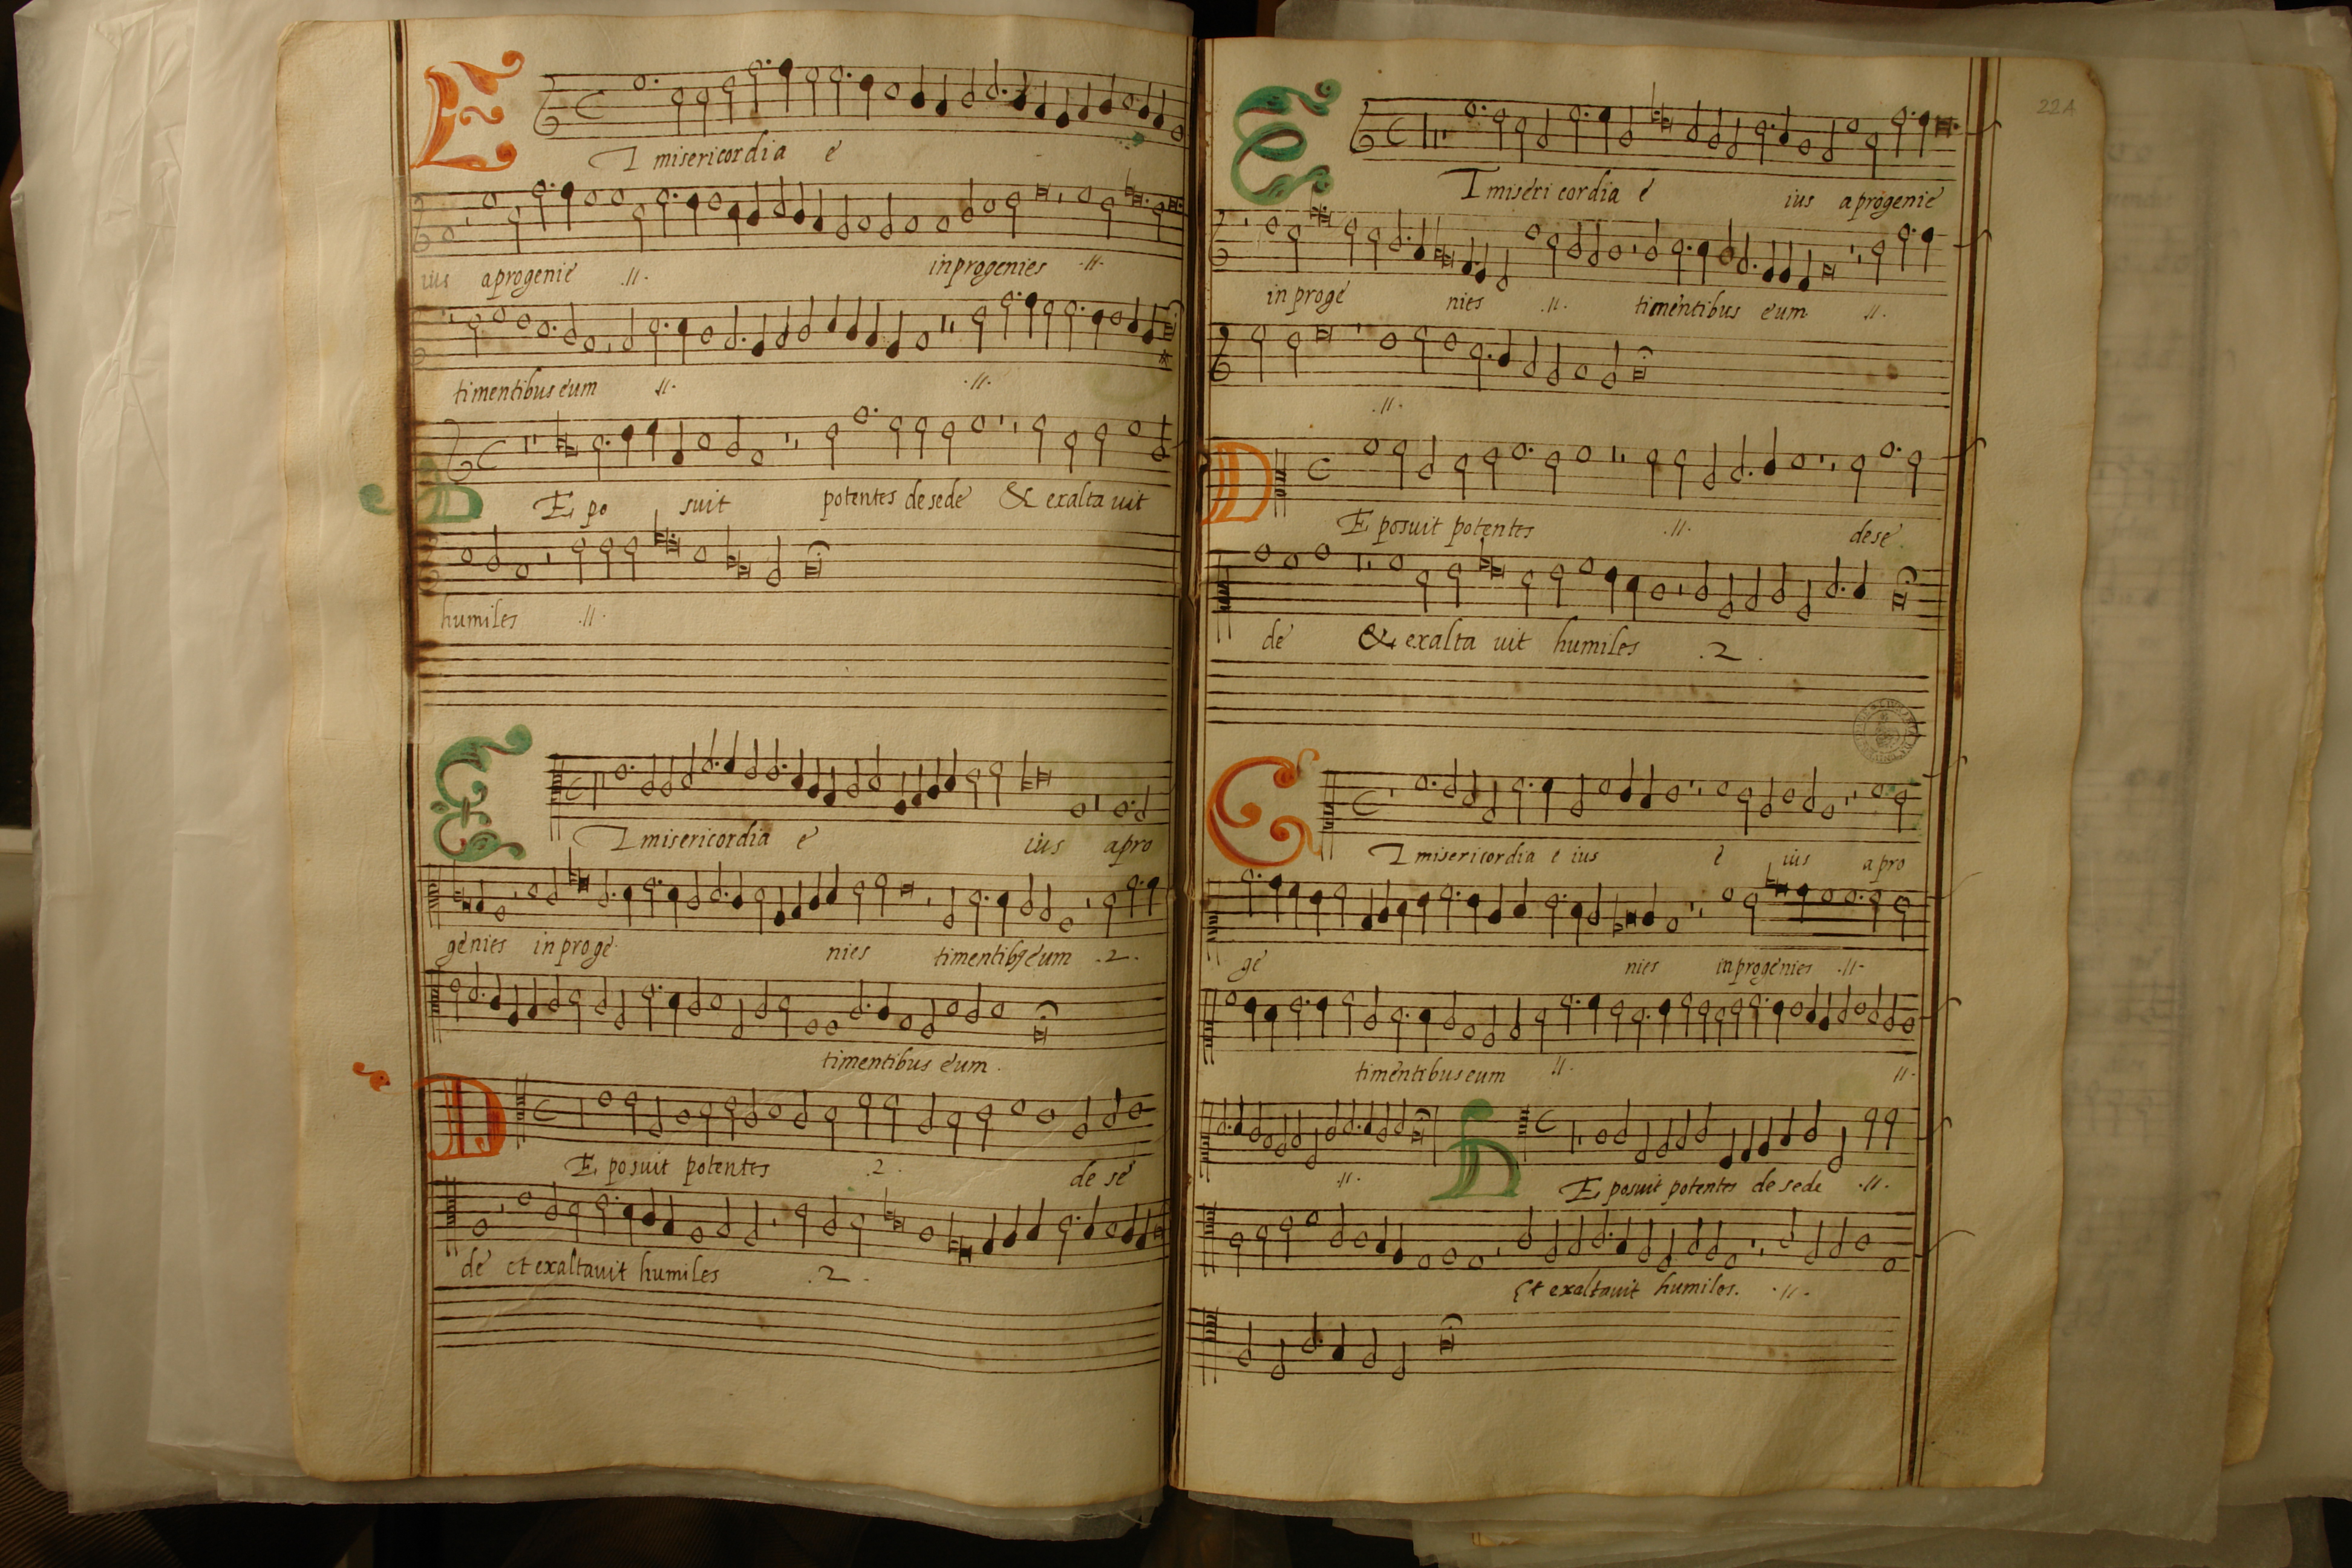 ET misericordia e
ius aprogenie .//.
inprogenies .//.
timentibus eum .//. .//.
DE po suit potentes de sede & exalta uit
humiles .//.
ET misericordia e ius a pro
genies in proge nies timentibꝫ eum .2.
timentibus eum.
DE posuit potentes .2. de se
de et exaltauit humiles .2.
22A
ET miseri cordia e ius aprogenie
in proge nies .//. timentibus eum .//.
.//.
DE posuit potentes .//. dese
de & exalta uit humiles .2.
ET misericordia e ius e ius a pro
ge nies inprogenies .//.
timentibus eum .//. .//.
.//. DE posuit potentes de sede .//.
Et exaltauit humiles. .//.